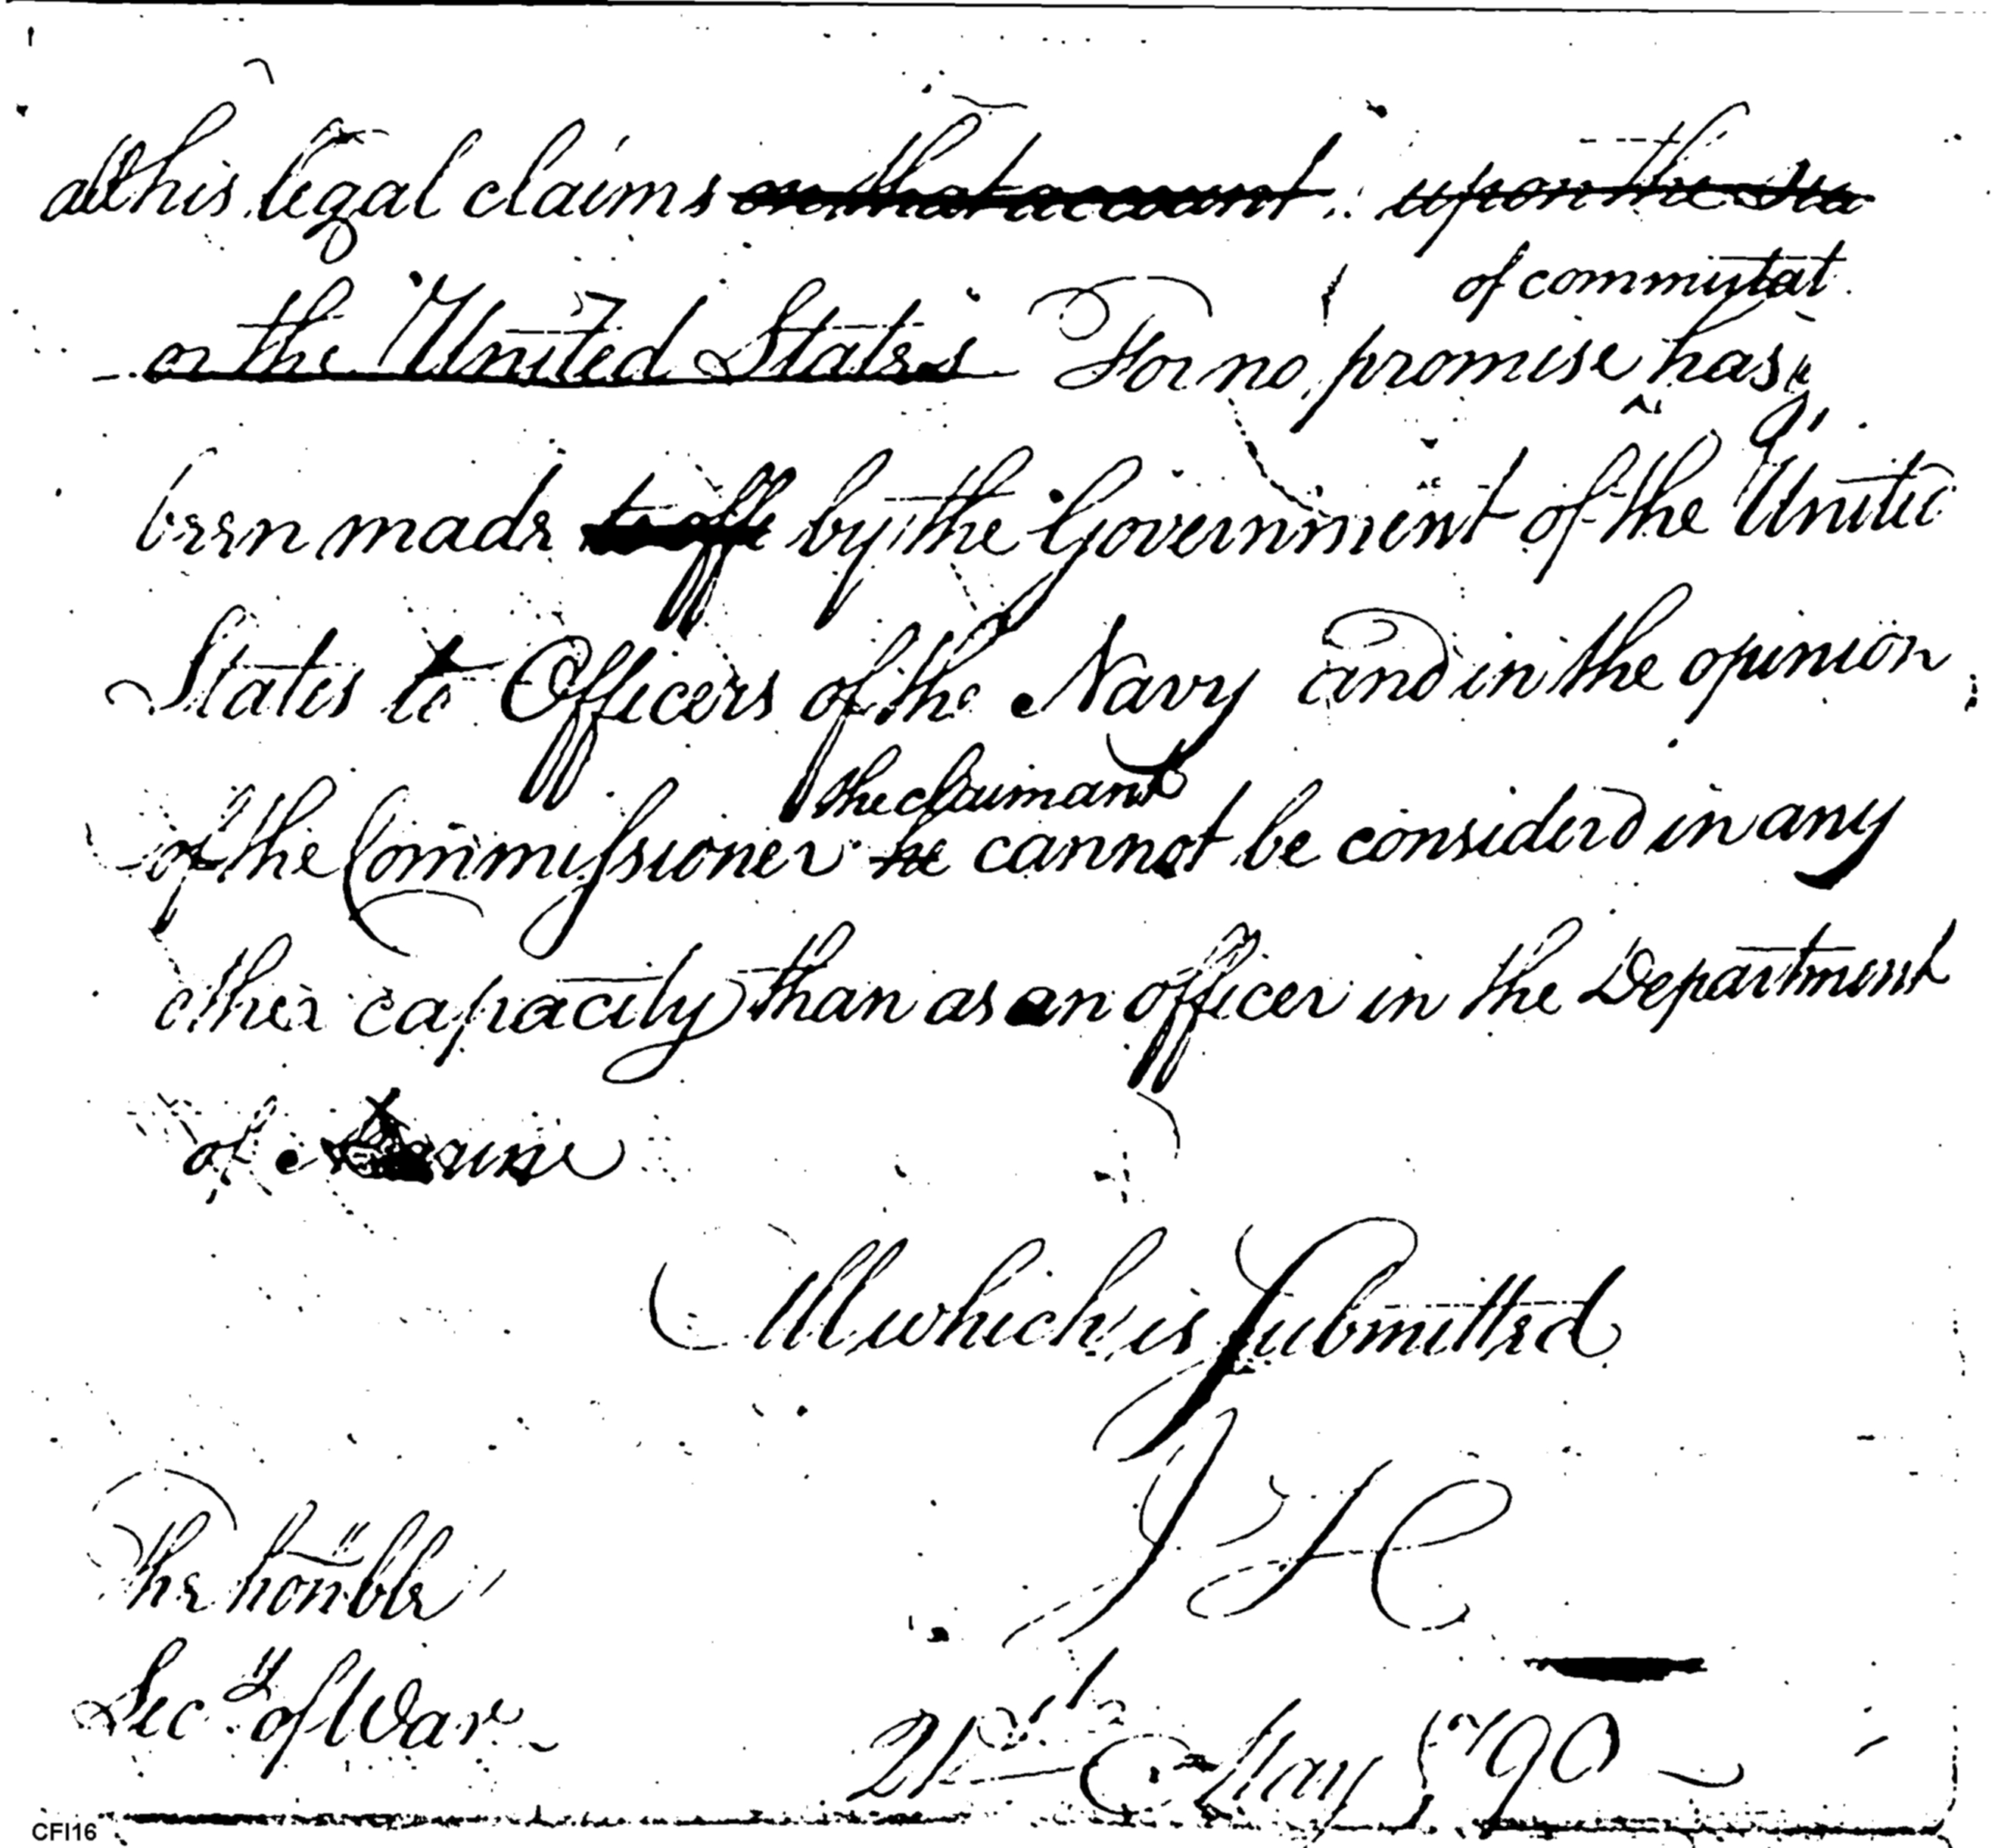 all his legal claims on that account. upon the
of commutat
on the United States For no promise has
been made to offe by the Government of the United
States to Officers of the Navy and in the opinion
the claimant
of the Commissioner he cannot be considered in any
other capacity than as an officer in the Department
of marine
All which is Submitted
J H
The honble
Secy of War
21st May 1790
CFI16